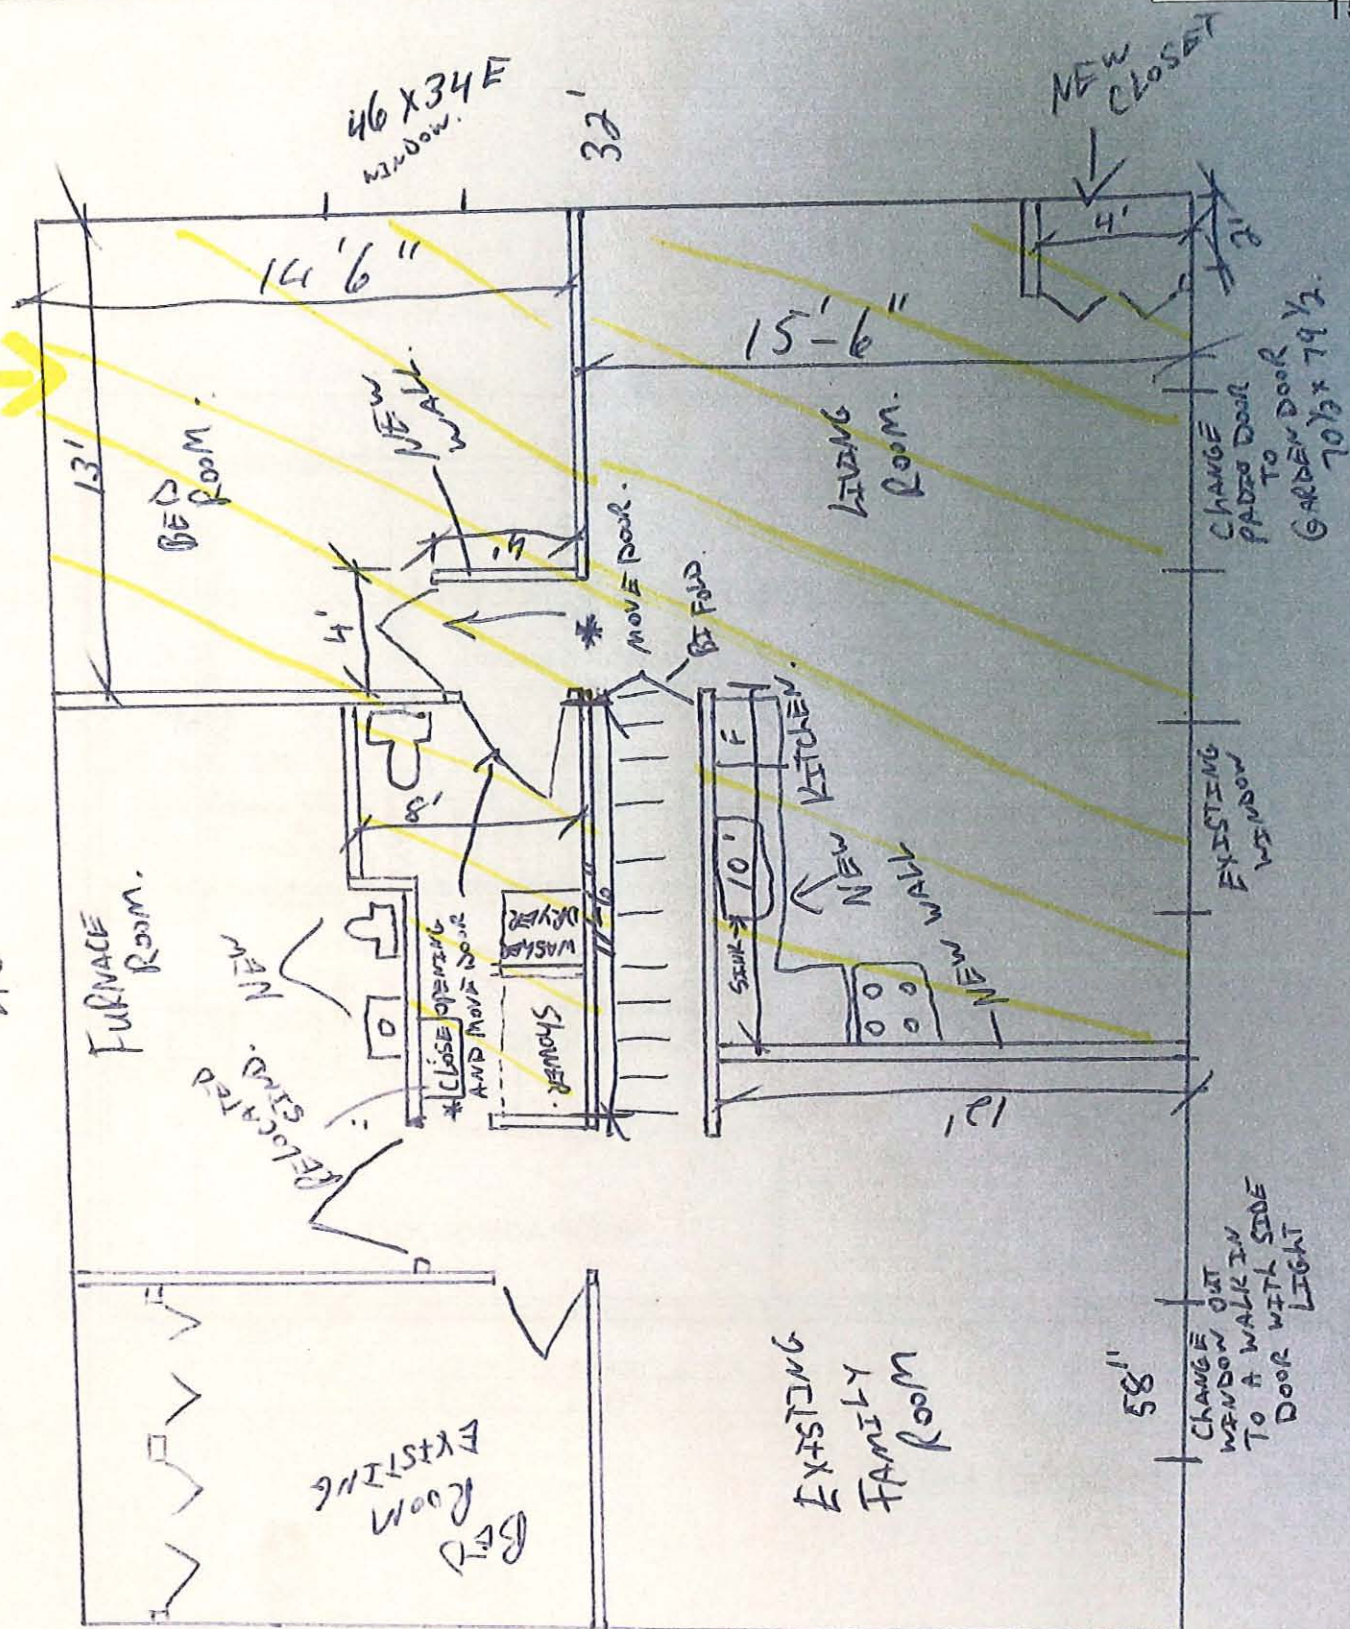 46 X 34 E
WINDOW.
32'
NEW
CLOSET
4'
2'
14'6"
13'
BED
ROOM.
NEW
WALL.
4'
15'-6"
LIVING
ROOM.
CHANGE
PADIO DOOR
TO
GARDEN DOOR
70 1/2 X 79 1/2.
*
MOVE DOOR.
BI FOLD.
FURNACE
ROOM.
NEW
8'
RELOCATED
SIND.
* CLOSE OPENING
AND MOVE DOOR
WASHER
DRYER
11'-6"
F
KITCHEN.
10'
SINK
NEW
WALL
NEW
EXISTING
WINDOW
12'
BED
ROOM
EXISTING
EXISTING
FAMILY
ROOM
58"
CHANGE OUT
WINDOW
TO A WALK IN
DOOR WITH SIDE
LIGHT